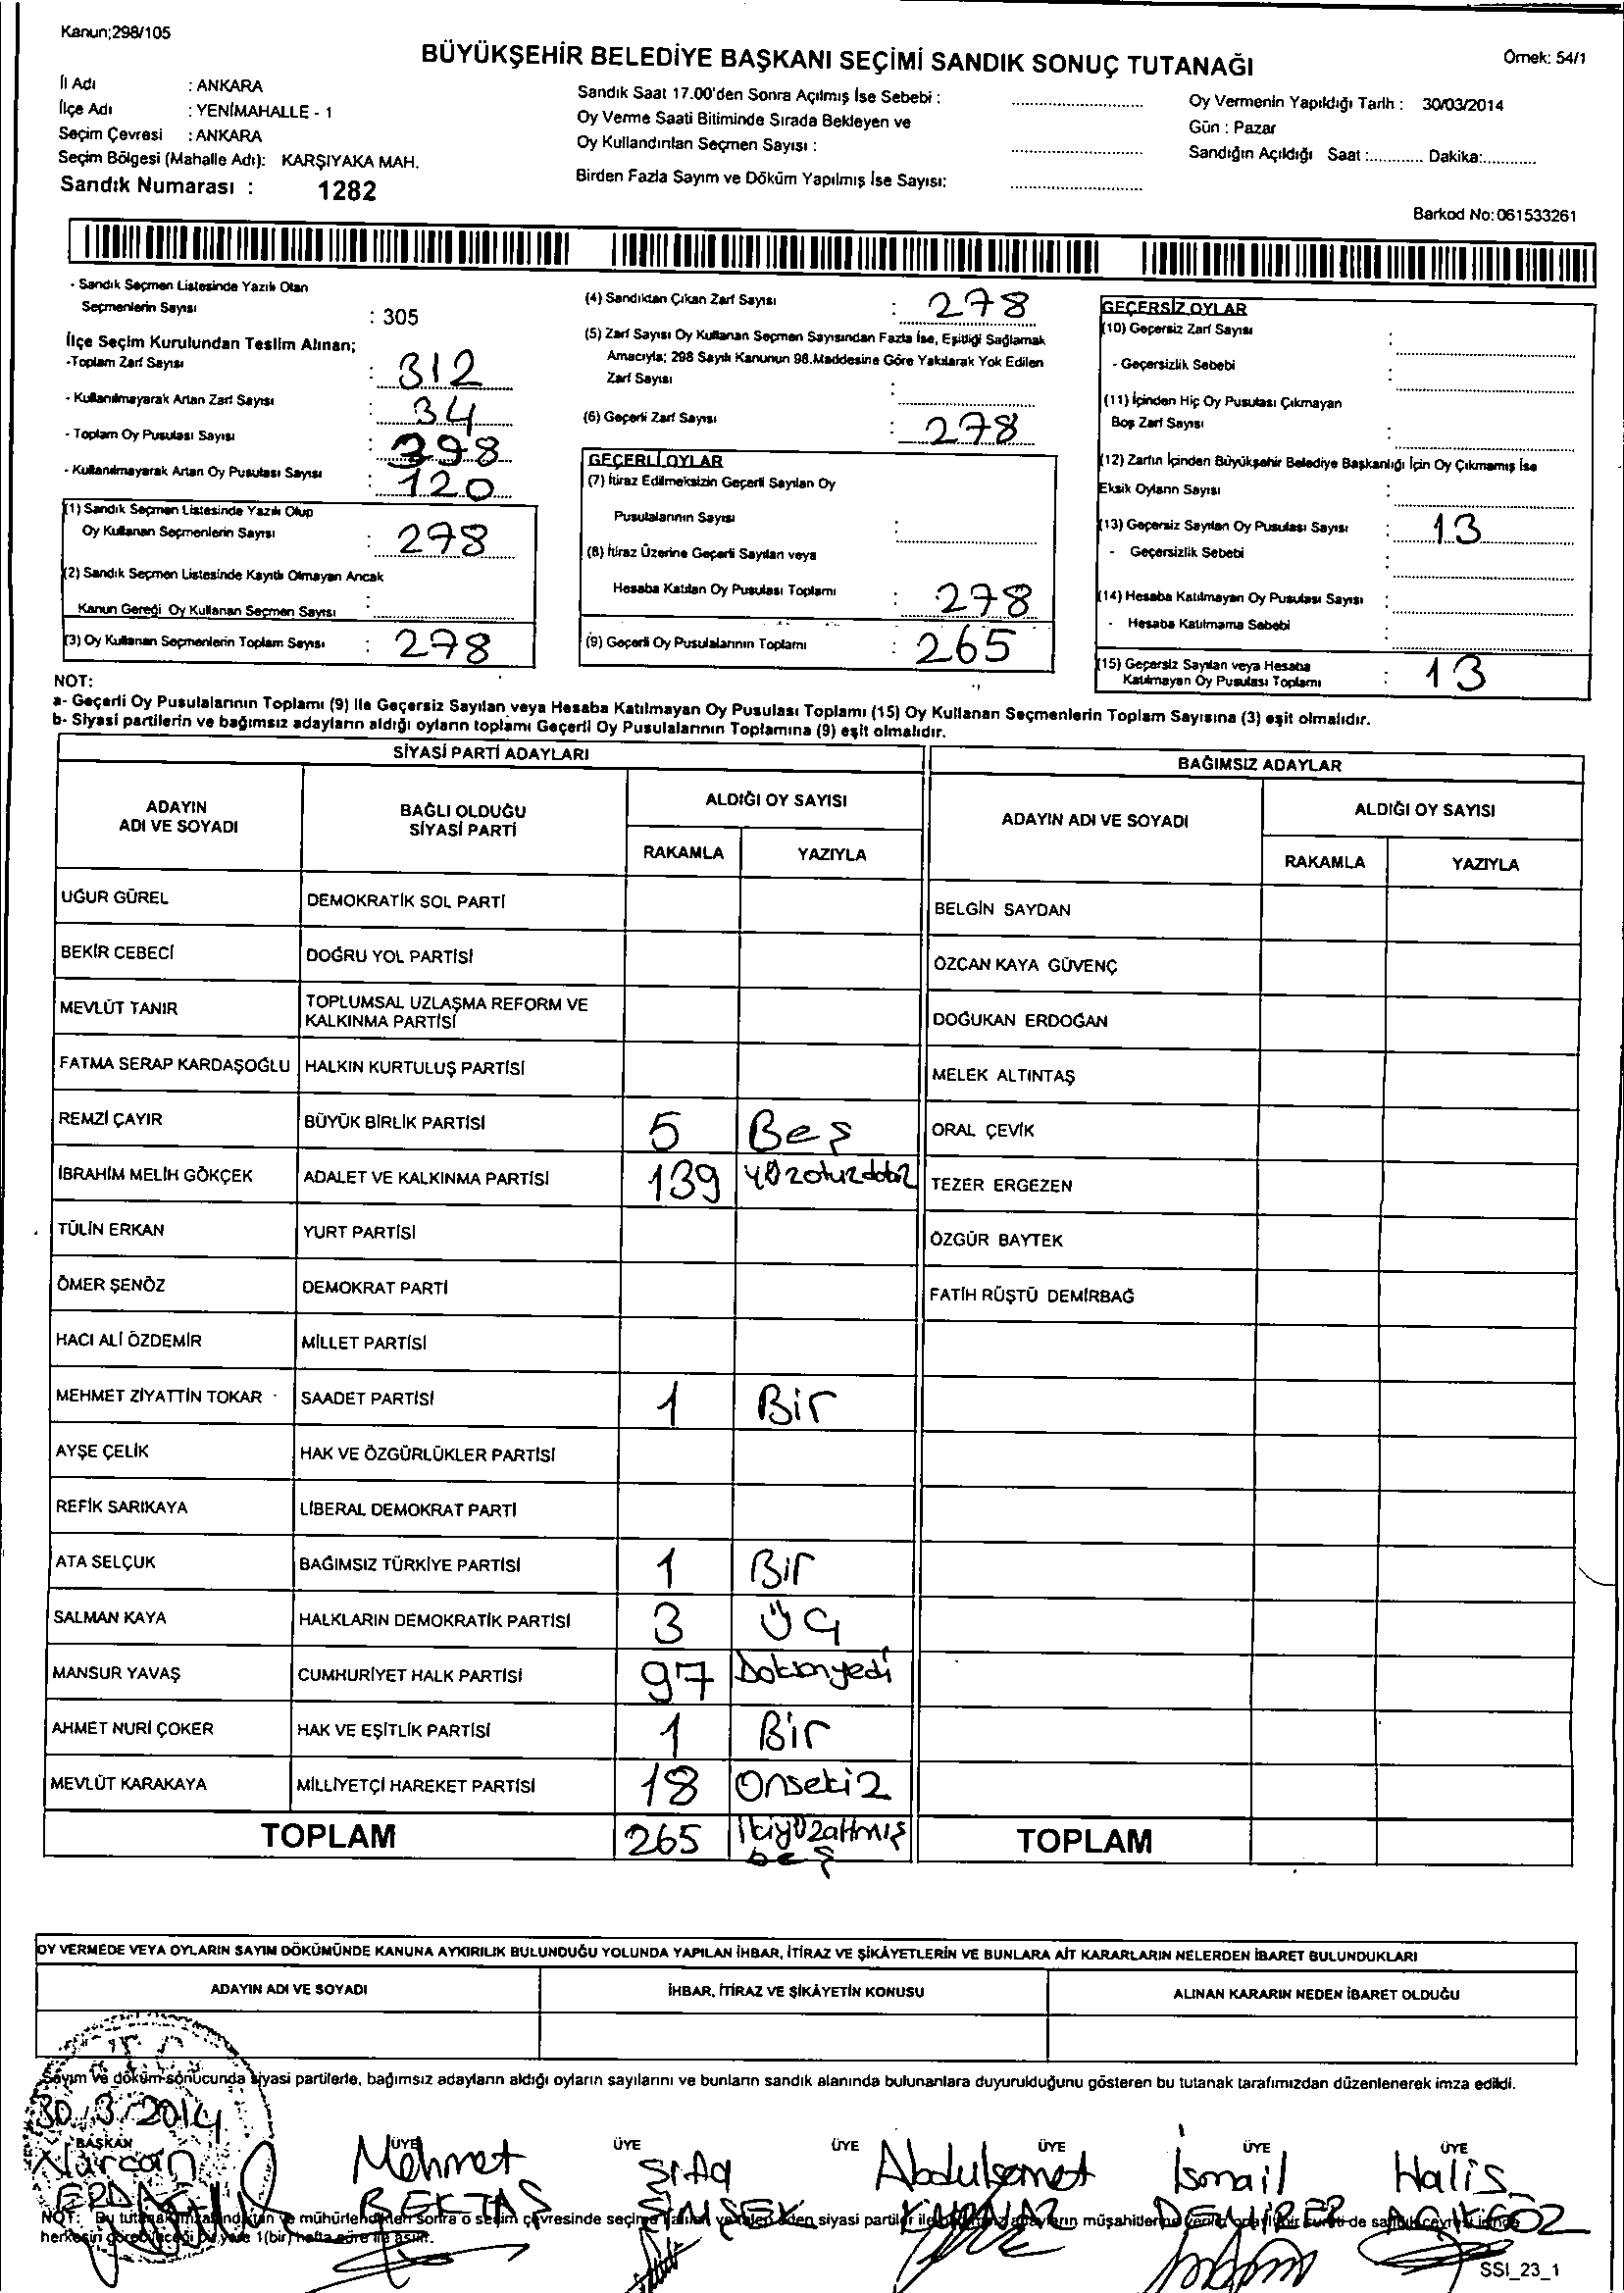 Kanun;298/105
BÜYÜKŞEHİR BELEDİYE BAŞKANI SEÇİMİ SANDIK SONUÇ TUTANAĞI
Örnek: 54/1
İl Adı : ANKARA
İlçe Adı : YENİMAHALLE - 1
Seçim Çevresi : ANKARA
Seçim Bölgesi (Mahalle Adı): KARŞIYAKA MAH.
Sandık Numarası : 1282
Sandık Saat 17.00'den Sonra Açılmış İse Sebebi :
Oy Verme Saati Bitiminde Sırada Bekleyen ve
Oy Kullandırılan Seçmen Sayısı :
Birden Fazla Sayım ve Döküm Yapılmış İse Sayısı:
Oy Vermenin Yapıldığı Tarih : 30/03/2014
Gün : Pazar
Sandığın Açıldığı Saat :............ Dakika:............
Barkod No:061533261
- Sandık Seçmen Listesinde Yazılı Olan
Seçmenlerin Sayısı : 305
İlçe Seçim Kurulundan Teslim Alınan;
-Toplam Zarf Sayısı : 312
- Kullanılmayarak Artan Zarf Sayısı : 34
- Toplam Oy Pusulası Sayısı : 398
- Kullanılmayarak Artan Oy Pusulası Sayısı : 120
(1) Sandık Seçmen Listesinde Yazılı Olup
Oy Kullanan Seçmenlerin Sayısı : 278
(2) Sandık Seçmen Listesinde Kayıtlı Olmayan Ancak
Kanun Gereği Oy Kullanan Seçmen Sayısı :
(3) Oy Kullanan Seçmenlerin Toplam Sayısı : 278
(4) Sandıktan Çıkan Zarf Sayısı : 278
(5) Zarf Sayısı Oy Kullanan Seçmen Sayısından Fazla İse, Eşitliği Sağlamak
Amacıyla; 298 Sayılı Kanunun 98.Maddesine Göre Yakılarak Yok Edilen
Zarf Sayısı :
(6) Geçerli Zarf Sayısı : 278
GEÇERLİ OYLAR
(7) İtiraz Edilmeksizin Geçerli Sayılan Oy
Pusulalarının Sayısı :
(8) İtiraz Üzerine Geçerli Sayılan veya
Hesaba Katılan Oy Pusulası Toplamı : 278
(9) Geçerli Oy Pusulalarının Toplamı : 265
GEÇERSİZ OYLAR
(10) Geçersiz Zarf Sayısı :
- Geçersizlik Sebebi :
(11) İçinden Hiç Oy Pusulası Çıkmayan
Boş Zarf Sayısı :
(12) Zarfın İçinden Büyükşehir Belediye Başkanlığı İçin Oy Çıkmamış İse
Eksik Oyların Sayısı :
(13) Geçersiz Sayılan Oy Pusulası Sayısı : 13
- Geçersizlik Sebebi :
(14) Hesaba Katılmayan Oy Pusulası Sayısı :
- Hesaba Katılmama Sebebi :
(15) Geçersiz Sayılan veya Hesaba
Katılmayan Oy Pusulası Toplamı : 13
NOT:
a- Geçerli Oy Pusulalarının Toplamı (9) İle Geçersiz Sayılan veya Hesaba Katılmayan Oy Pusulası Toplamı (15) Oy Kullanan Seçmenlerin Toplam Sayısına (3) eşit olmalıdır.
b- Siyasi partilerin ve bağımsız adayların aldığı oyların toplamı Geçerli Oy Pusulalarının Toplamına (9) eşit olmalıdır.
SİYASİ PARTİ ADAYLARI
BAĞIMSIZ ADAYLAR
ADAYIN ADI VE SOYADI
BAĞLI OLDUĞU SİYASİ PARTİ
ALDIĞI OY SAYISI
RAKAMLA YAZIYLA
ADAYIN ADI VE SOYADI
ALDIĞI OY SAYISI
RAKAMLA YAZIYLA
UĞUR GÜREL DEMOKRATİK SOL PARTİ BELGİN SAYDAN
BEKİR CEBECİ DOĞRU YOL PARTİSİ ÖZCAN KAYA GÜVENÇ
MEVLÜT TANIR TOPLUMSAL UZLAŞMA REFORM VE KALKINMA PARTİSİ DOĞUKAN ERDOĞAN
FATMA SERAP KARDAŞOĞLU HALKIN KURTULUŞ PARTİSİ MELEK ALTINTAŞ
REMZİ ÇAYIR BÜYÜK BİRLİK PARTİSİ 5 Beş ORAL ÇEVİK
İBRAHİM MELİH GÖKÇEK ADALET VE KALKINMA PARTİSİ 139 TEZER ERGEZEN
TÜLİN ERKAN YURT PARTİSİ ÖZGÜR BAYTEK
ÖMER ŞENÖZ DEMOKRAT PARTİ FATİH RÜŞTÜ DEMİRBAĞ
HACI ALİ ÖZDEMİR MİLLET PARTİSİ
MEHMET ZİYATTİN TOKAR SAADET PARTİSİ 1 Bir
AYŞE ÇELİK HAK VE ÖZGÜRLÜKLER PARTİSİ
REFİK SARIKAYA LİBERAL DEMOKRAT PARTİ
ATA SELÇUK BAĞIMSIZ TÜRKİYE PARTİSİ 1 Bir
SALMAN KAYA HALKLARIN DEMOKRATİK PARTİSİ 3 Üç
MANSUR YAVAŞ CUMHURİYET HALK PARTİSİ 97 Doksanyedi
AHMET NURİ ÇOKER HAK VE EŞİTLİK PARTİSİ 1 Bir
MEVLÜT KARAKAYA MİLLİYETÇİ HAREKET PARTİSİ 18 Onsekiz
TOPLAM 265 İkiyüzaltmış beş TOPLAM
OY VERMEDE VEYA OYLARIN SAYIM DÖKÜMÜNDE KANUNA AYKIRILIK BULUNDUĞU YOLUNDA YAPILAN İHBAR, İTİRAZ VE ŞİKÂYETLERİN VE BUNLARA AİT KARARLARIN NELERDEN İBARET BULUNDUKLARI
ADAYIN ADI VE SOYADI İHBAR, İTİRAZ VE ŞİKÂYETİN KONUSU ALINAN KARARIN NEDEN İBARET OLDUĞU
Sayım ve döküm sonucunda siyasi partilerle, bağımsız adayların aldığı oyların sayılarını ve bunların sandık alanında bulunanlara duyurulduğunu gösteren bu tutanak tarafımızdan düzenlenerek imza edildi.
30/3/2014
BAŞKAN ÜYE ÜYE ÜYE ÜYE ÜYE ÜYE
Nurcan Mehmet Abdulsamet İsmail Halis
BEKTAŞ ŞİMŞEK DEMİRER AÇIKGÖZ
mühürlendikten sonra o seçim çevresinde siyasi partiler
herkesin görebileceği bir yere 1(bir) hafta süre ile asılır.
SSI_23_1